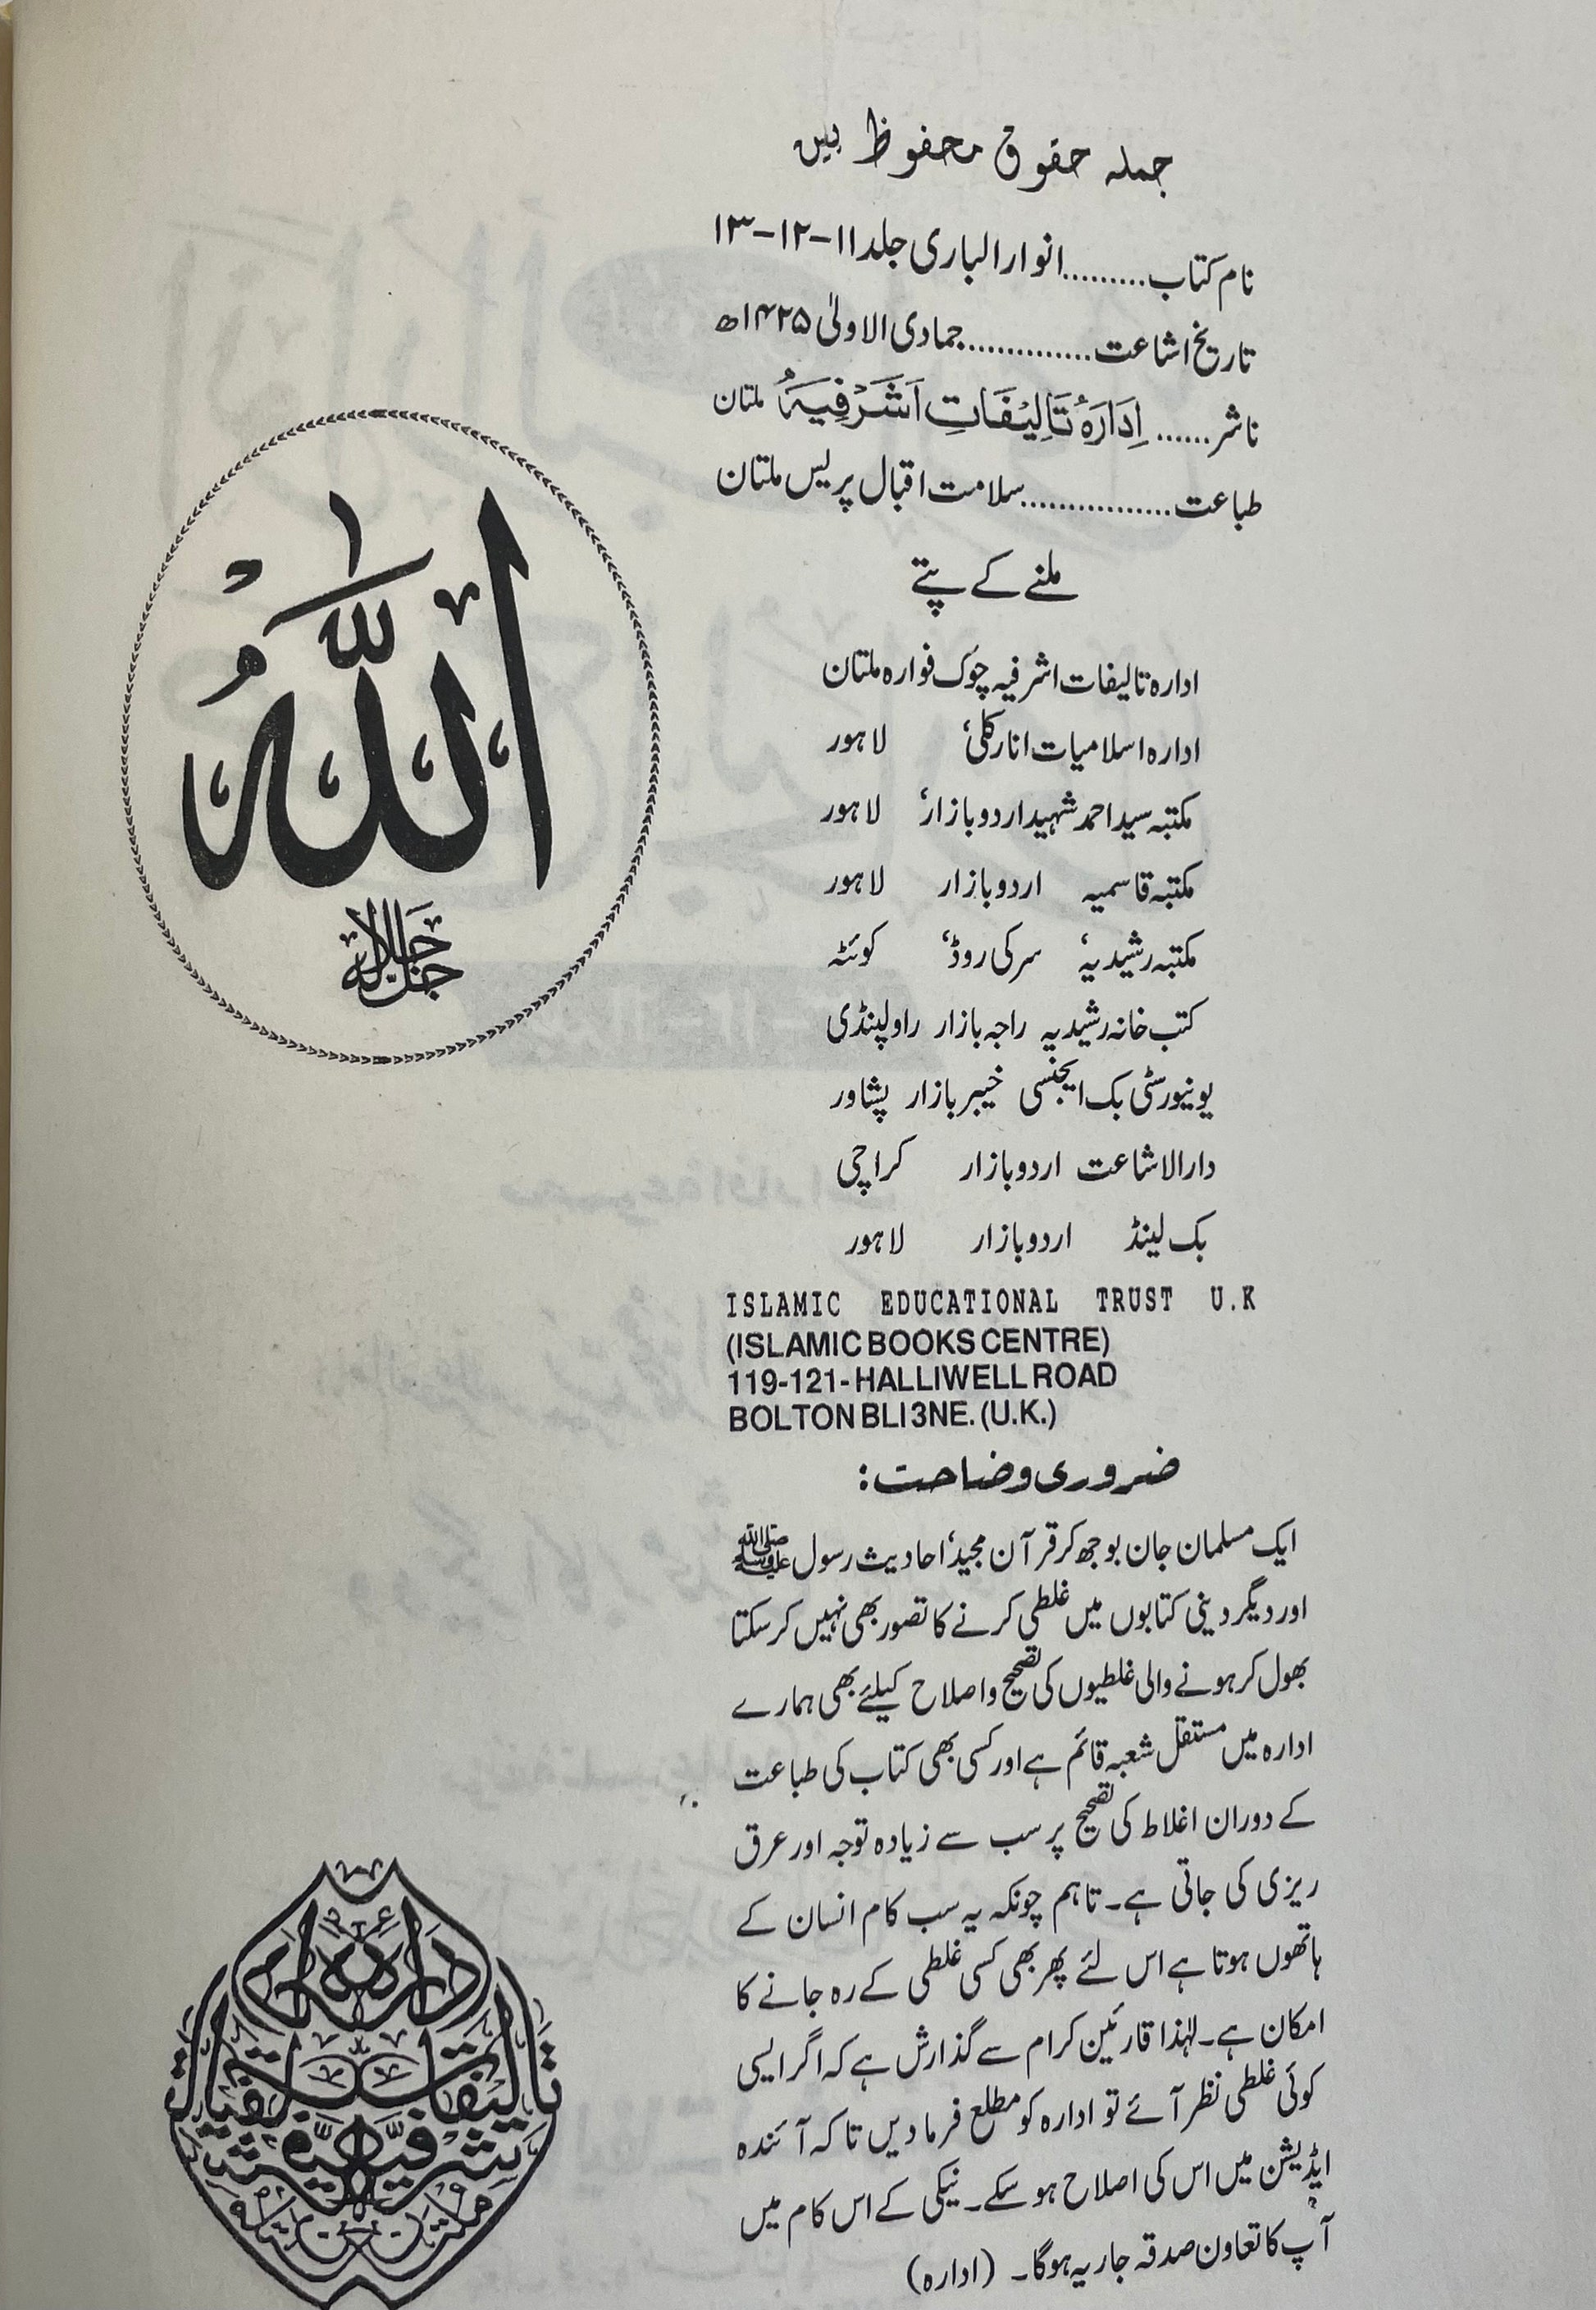 جملہ حقوق محفوظ ہیں
نام کتاب.........انوار الباری جلد ۱۱-۱۲-۱۳
تاریخ اشاعت..............جمادی الاولیٰ ۱۴۲۵ھ
ناشر...... اِدَارَہُ تَالِیْفَاتِ اَشْرَفِیَہُ ملتان
طباعت.................سلامت اقبال پریس ملتان
ملنے کے پتے
ادارہ تالیفات اشرفیہ چوک فوارہ ملتان
ادارہ اسلامیات انارکلی، لاہور
مکتبہ سید احمد شہید اردو بازار، لاہور
مکتبہ قاسمیہ اردو بازار لاہور
مکتبہ رشیدیہ، سرکی روڈ، کوئٹہ
کتب خانہ رشیدیہ راجہ بازار راولپنڈی
یونیورسٹی بک ایجنسی خیبر بازار پشاور
دارالاشاعت اردو بازار کراچی
بک لینڈ اردو بازار لاہور
ISLAMIC EDUCATIONAL TRUST U.K
(ISLAMIC BOOKS CENTRE)
119-121- HALLIWELL ROAD
BOLTON BLI 3NE. (U.K.)
ضروری وضاحت:
ایک مسلمان جان بوجھ کر قرآن مجید، احادیث رسول ﷺ
اور دیگر دینی کتابوں میں غلطی کرنے کا تصور بھی نہیں کر سکتا
بھول کر ہونے والی غلطیوں کی تصحیح و اصلاح کیلئے بھی ہمارے
ادارہ میں مستقل شعبہ قائم ہے اور کسی بھی کتاب کی طباعت
کے دوران اغلاط کی تصحیح پر سب سے زیادہ توجہ اور عرق
ریزی کی جاتی ہے۔ تاہم چونکہ یہ سب کام انسان کے
ہاتھوں ہوتا ہے اس لئے پھر بھی کسی غلطی کے رہ جانے کا
امکان ہے۔ لہٰذا قارئین کرام سے گذارش ہے کہ اگر ایسی
کوئی غلطی نظر آئے تو ادارہ کو مطلع فرما دیں تاکہ آئندہ
ایڈیشن میں اس کی اصلاح ہو سکے۔ نیکی کے اس کام میں
آپ کا تعاون صدقہ جاریہ ہوگا۔ (ادارہ)
اللّٰهُ
جل جلالہ
ادارہ
تالیفات
اشرفیہ